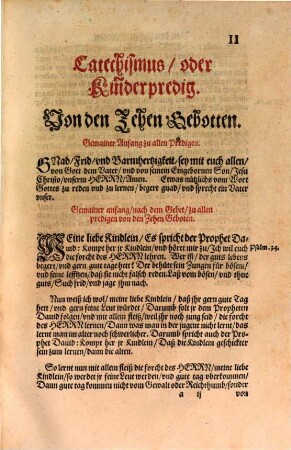 II
Catechismus / oder
Kinderpredig.
Von den Zehen Gebotten.
Gemainer Anfang zu allen Predigen.
GNad/Frid/vnd Barmhertzigkeit/sey mit euch allen/
von Gott dem Vater/vnd von seinem Eingebornen Son/Jesu
Christo/vnserm HERRN/Amen. Etwas nützlichs vom Wort
Gottes zu reden vnd zu lernen/begert gnad/vnd sprecht ein Vater
vnser.
Gemainer anfang/nach dem Gebet/zu allen
predigen von den Zehen Geboten.
MEine liebe Kindlein/Es spricht der Prophet Da-
uid: Kompt her jr Kindlein/vnd hört mir zu/Ich will euch
Psalm. 34.
die forcht des HERRN lehren. Wer ist/der guts lebens
begert/vnd gern gute tag hett? Der behüte sein Zungen für bösem/
vnd seine lefftzen/daß sie nicht falsch reden. Laß vom bösen/vnd thue
guts/Such frid/vnd jage jhm nach.
Nun weiß ich wol/meine liebe Kindlein/daß jhr gern gute Tag
hett/vnd gern feine Leut würdet/Darumb solt jr dem Propheten
Dauid folgen/vnd mit allem fleiß/weil jhr noch jung seid/die forcht
des HERRN lernen/Dann was man in der jugent nicht lernt/das
lernt man im alter noch schwerlicher. Darumb spricht auch der Pro-
phet Dauid: Kompt her jr Kindlein/Daß die Kindlein geschickter
sein zum lernen/dann die alten.
So lernt nun mit allem fleiß die forcht des HERRN/meine liebe
Kindlein/so werdet jr feine Leut werden/vnd gute tag vberkommen/
Dann gute tag kommen nicht vom Gewalt oder Reichthumb/sonder
a ij
von